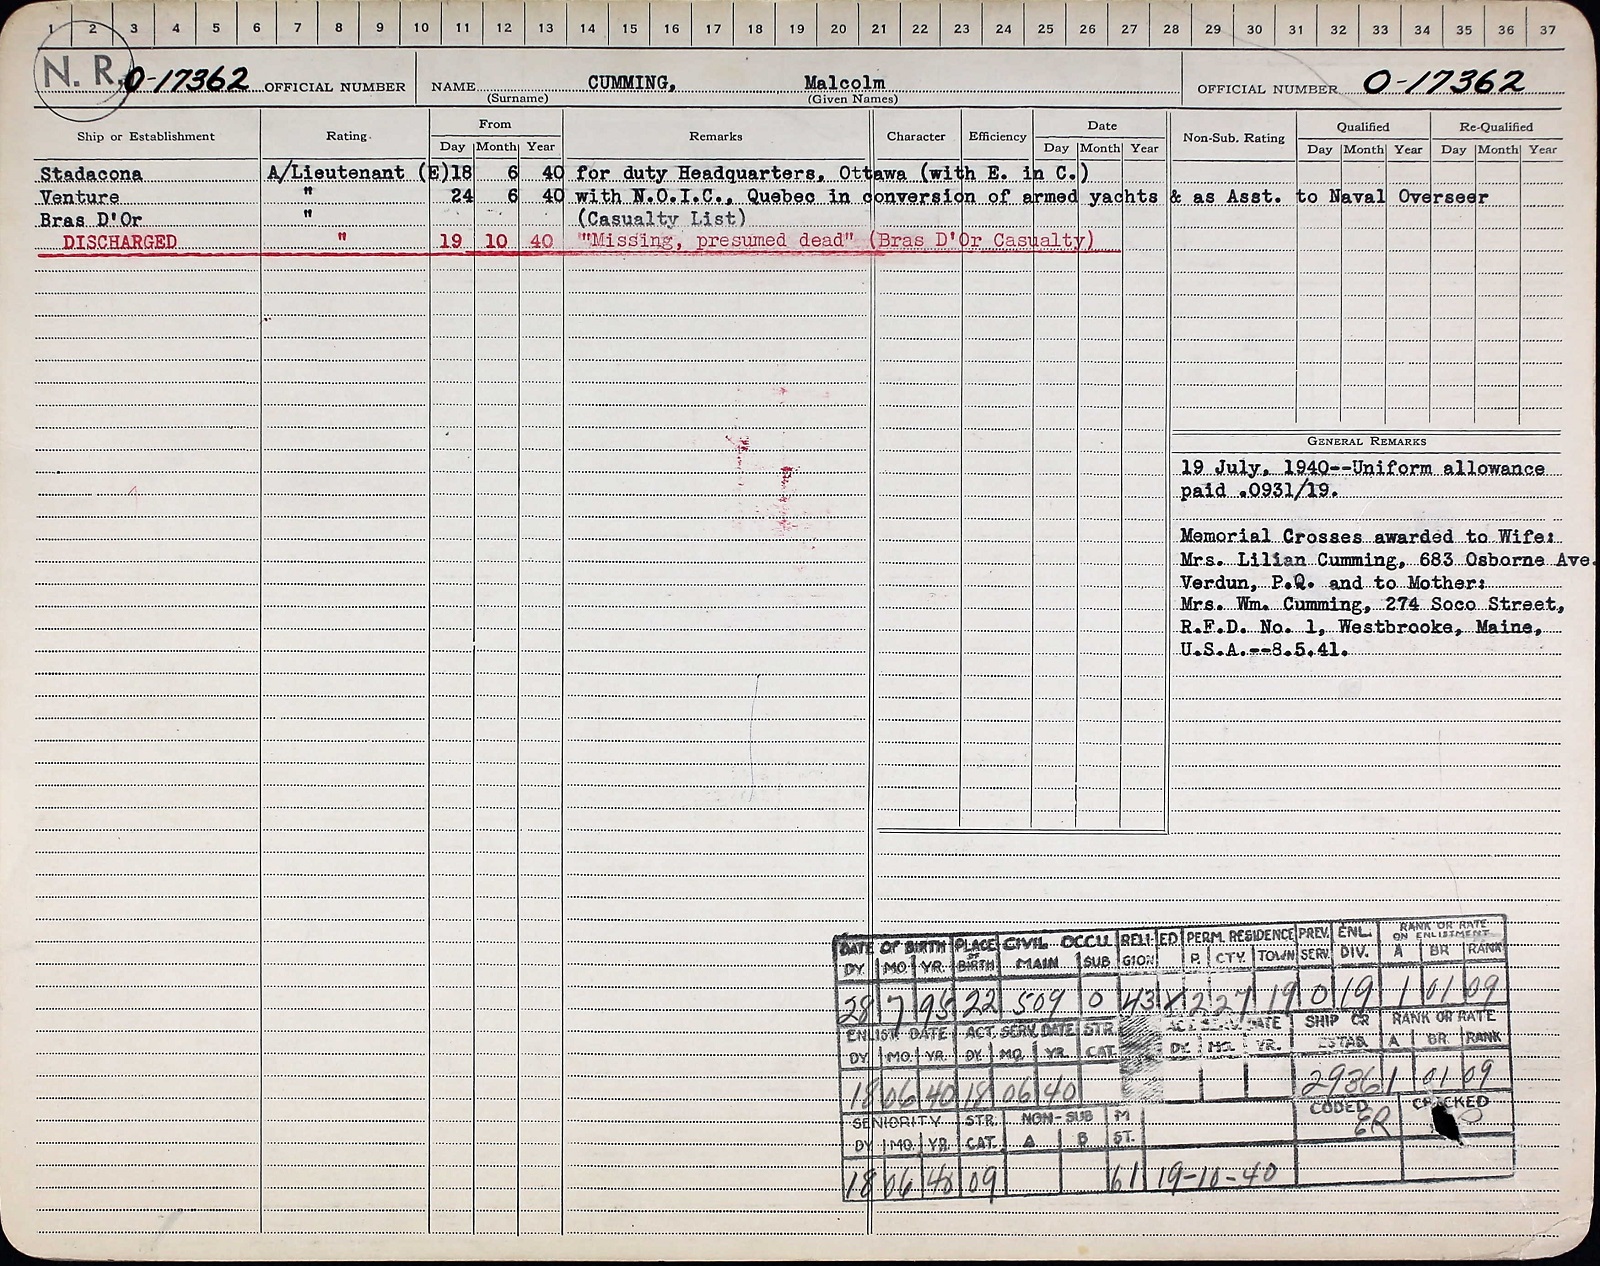 1 2 3 4 5 6 7 8 9 10 11 12 13 14 15 16 17 18 19 20 21 22 23 24 25 26 27 28 29 30 31 32 33 34 35 36 37
N. R. O-17362 OFFICIAL NUMBER NAME CUMMING, Malcolm OFFICIAL NUMBER O-17362
(Surname) (Given Names)
Ship or Establishment Rating From Remarks Character Efficiency Date Non-Sub. Rating Qualified Re-Qualified
Day Month Year Day Month Year Day Month Year Day Month Year
Stadacona A/Lieutenant (E) 18 6 40 for duty Headquarters, Ottawa (with E. in C.)
Venture " 24 6 40 with N.O.I.C., Quebec in conversion of armed yachts & as Asst. to Naval Overseer
Bras D'Or " (Casualty List)
DISCHARGED " 19 10 40 "Missing, presumed dead" (Bras D'Or Casualty)
GENERAL REMARKS
19 July, 1940--Uniform allowance
paid .0931/19.
Memorial Crosses awarded to Wife:
Mrs. Lilian Cumming, 683 Osborne Ave.
Verdun, P.Q. and to Mother:
Mrs. Wm. Cumming, 274 Soco Street,
R.F.D. No. 1, Westbrooke, Maine,
U.S.A.--8.5.41.
DATE OF BIRTH PLACE OF BIRTH CIVIL OCCU. RELIGION ED PERM. RESIDENCE PREV. SERV. ENL. DIV. RANK OR RATE ON ENLISTMENT
DY. MO. YR. MAIN SUB P. CTY. TOWN A BR RANK
28 7 95 22 509 0 43 X 2 27 19 0 19 1 01 09
ENLIST. DATE ACT. SERV. DATE STR. CAT. ACT. SERV. DATE SHIP OR ESTAB. RANK OR RATE
DY. MO. YR. DY. MO. YR. DY. MO. YR. A BR. RANK
18 06 40 18 06 40 2936 1 01 09
SENIORITY STR. CAT. NON-SUB M ST. CODED CHECKED
DY. MO. YR. A B ER
18 06 40 09 61 19-10-40